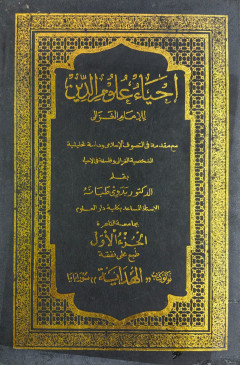 إحياء علوم الدين
للإمام الغزالي
مع مقدمة في التصوف الإسلامي ودراسة تحليلية
لشخصية الغزالي وفلسفته في الإحياء
بقلم
الدكتور بدوي طبانه
الأستاذ المساعد بكلية دار العلوم
بجامعة القاهرة
الجزء الأول
طبع على نفقة
"الهداية" سورابايا